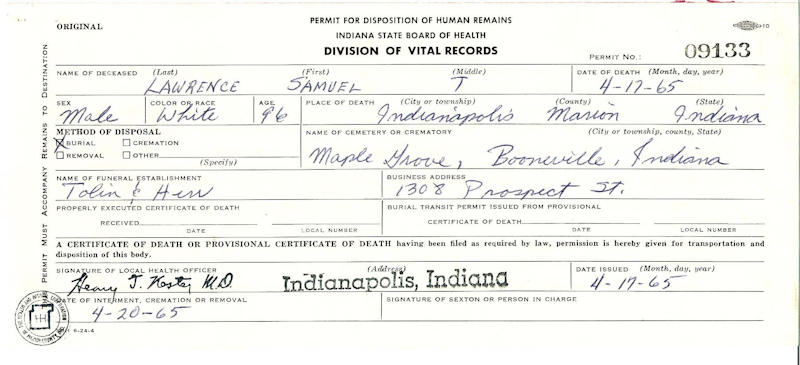 ORIGINAL
PERMIT FOR DISPOSITION OF HUMAN REMAINS
INDIANA STATE BOARD OF HEALTH
DIVISION OF VITAL RECORDS
PERMIT NO.: 09133
PERMIT MUST ACCOMPANY REMAINS TO DESTINATION
NAME OF DECEASED (Last) (First) (Middle) DATE OF DEATH (Month, day, year)
LAWRENCE SAMUEL T 4-17-65
SEX COLOR OR RACE AGE PLACE OF DEATH (City or township) (County) (State)
Male White 96 Indianapolis Marion Indiana
METHOD OF DISPOSAL NAME OF CEMETERY OR CREMATORY (City or township, county, State)
BURIAL CREMATION
REMOVAL OTHER (Specify)
Maple Grove, Booneville, Indiana
NAME OF FUNERAL ESTABLISHMENT BUSINESS ADDRESS
Tolin & Herr 1308 Prospect St.
PROPERLY EXECUTED CERTIFICATE OF DEATH BURIAL TRANSIT PERMIT ISSUED FROM PROVISIONAL
RECEIVED CERTIFICATE OF DEATH
DATE LOCAL NUMBER DATE LOCAL NUMBER
A CERTIFICATE OF DEATH OR PROVISIONAL CERTIFICATE OF DEATH having been filed as required by law, permission is hereby given for transportation and
disposition of this body.
SIGNATURE OF LOCAL HEALTH OFFICER (Address) DATE ISSUED (Month, day, year)
Henry T. M.D. Indianapolis, Indiana 4-17-65
DATE OF INTERMENT, CREMATION OR REMOVAL SIGNATURE OF SEXTON OR PERSON IN CHARGE
4-20-65
6-24-4